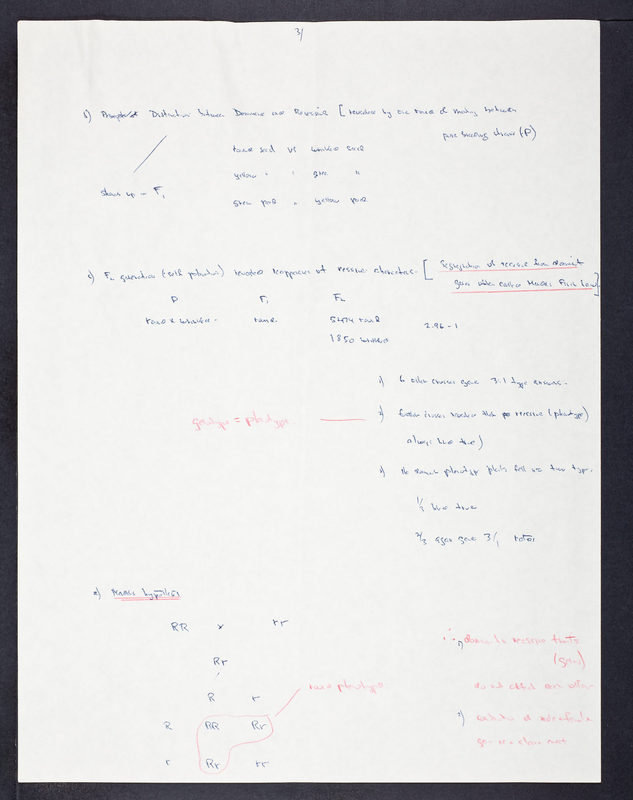 3/
b) Distinction between Dominance and Recessive [revealed by the round of mating between
pure breeding strains (P)
round seed vs wrinkled seed
yellow " " green "
green pod " yellow pod
shows up in F1
c) F2 generation (self pollination) revealed reappearance of recessive characteristic. [Segregation of recessive from dominant
gene often called Mendel's First Law]
P F1 F2
round x wrinkled - round. 5474 round 2.96 - 1
1850 wrinkled
1) 6 other crosses gave 3:1 type
2) further crosses revealed that recessive (phenotype)
always bred true)
genotype = phenotype
3) the dominant phenotype plants fell into two types.
1/3 bred true
2/3 again gave 3/1 ratios
2) Mendel's hypothesis
RR x rr
Rr
R r
R RR Rr
r Rr rr
round phenotype
∴ 1) dominant & recessive traits
(genes)
do not affect each other
2)